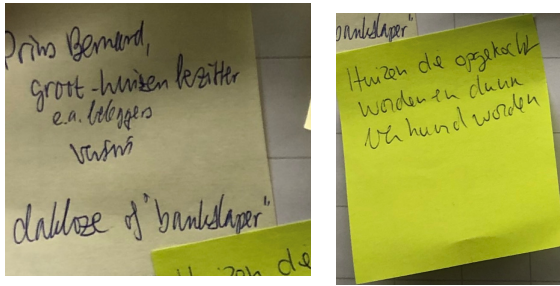 Prins Bernard,
groot-huizen bezitter
e.a. beleggers
versus
dakloze of "bankslaper"
Huizen die
bankslaper"
Huizen die opgekocht
worden en dan
verhuurd worden